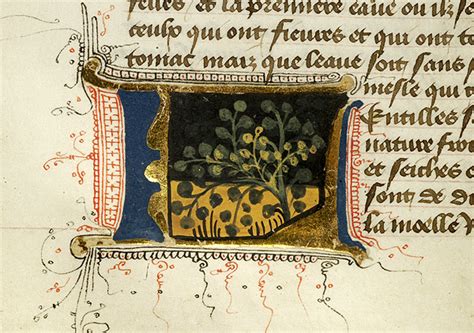 feues et la premiere eaue ou il
ceulx qui ont fieures et qui ont
tomac maiz que leaue soit sans
mesle qui
Entilles
nature
et seiches
sont de
la moelle